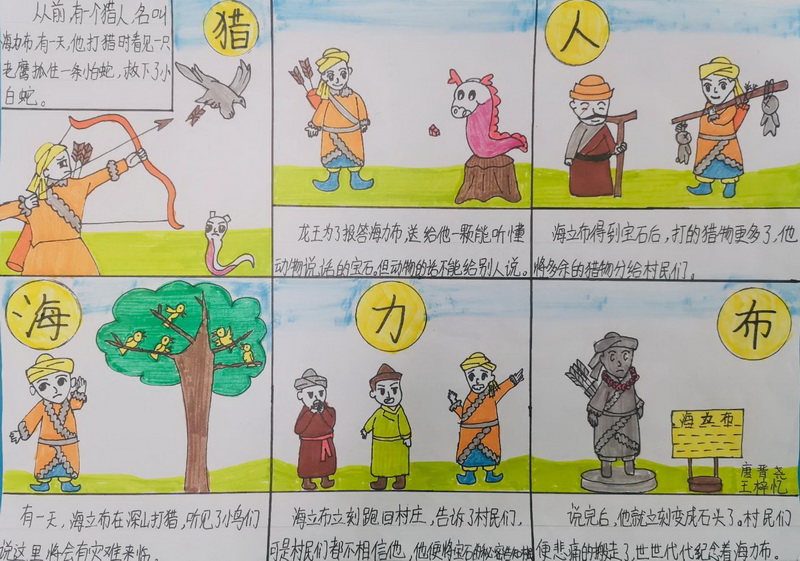 从前,有一个猎人,名叫
海力布,有一天,他打猎时看见一只
老鹰抓住一条小白蛇,救下了小
白蛇。
猎
人
龙王为了报答海力布,送给他一颗能听懂
动物说话的宝石。但动物的话不能给别人说。
海立布得到宝石后,打的猎物更多了,他
将多余的猎物分给村民们。
海
力
布
海立布
唐晋尧
王梓忆
有一天,海立布在深山打猎,听见了小鸟们
说这里将会有灾难来临。
海立布立刻跑回村庄,告诉了村民们,
可是村民们都不相信他,他便将宝石的秘密
说完后,他就立刻变成石头了。村民们
便悲痛的搬走了,世世代代纪念着海力布。